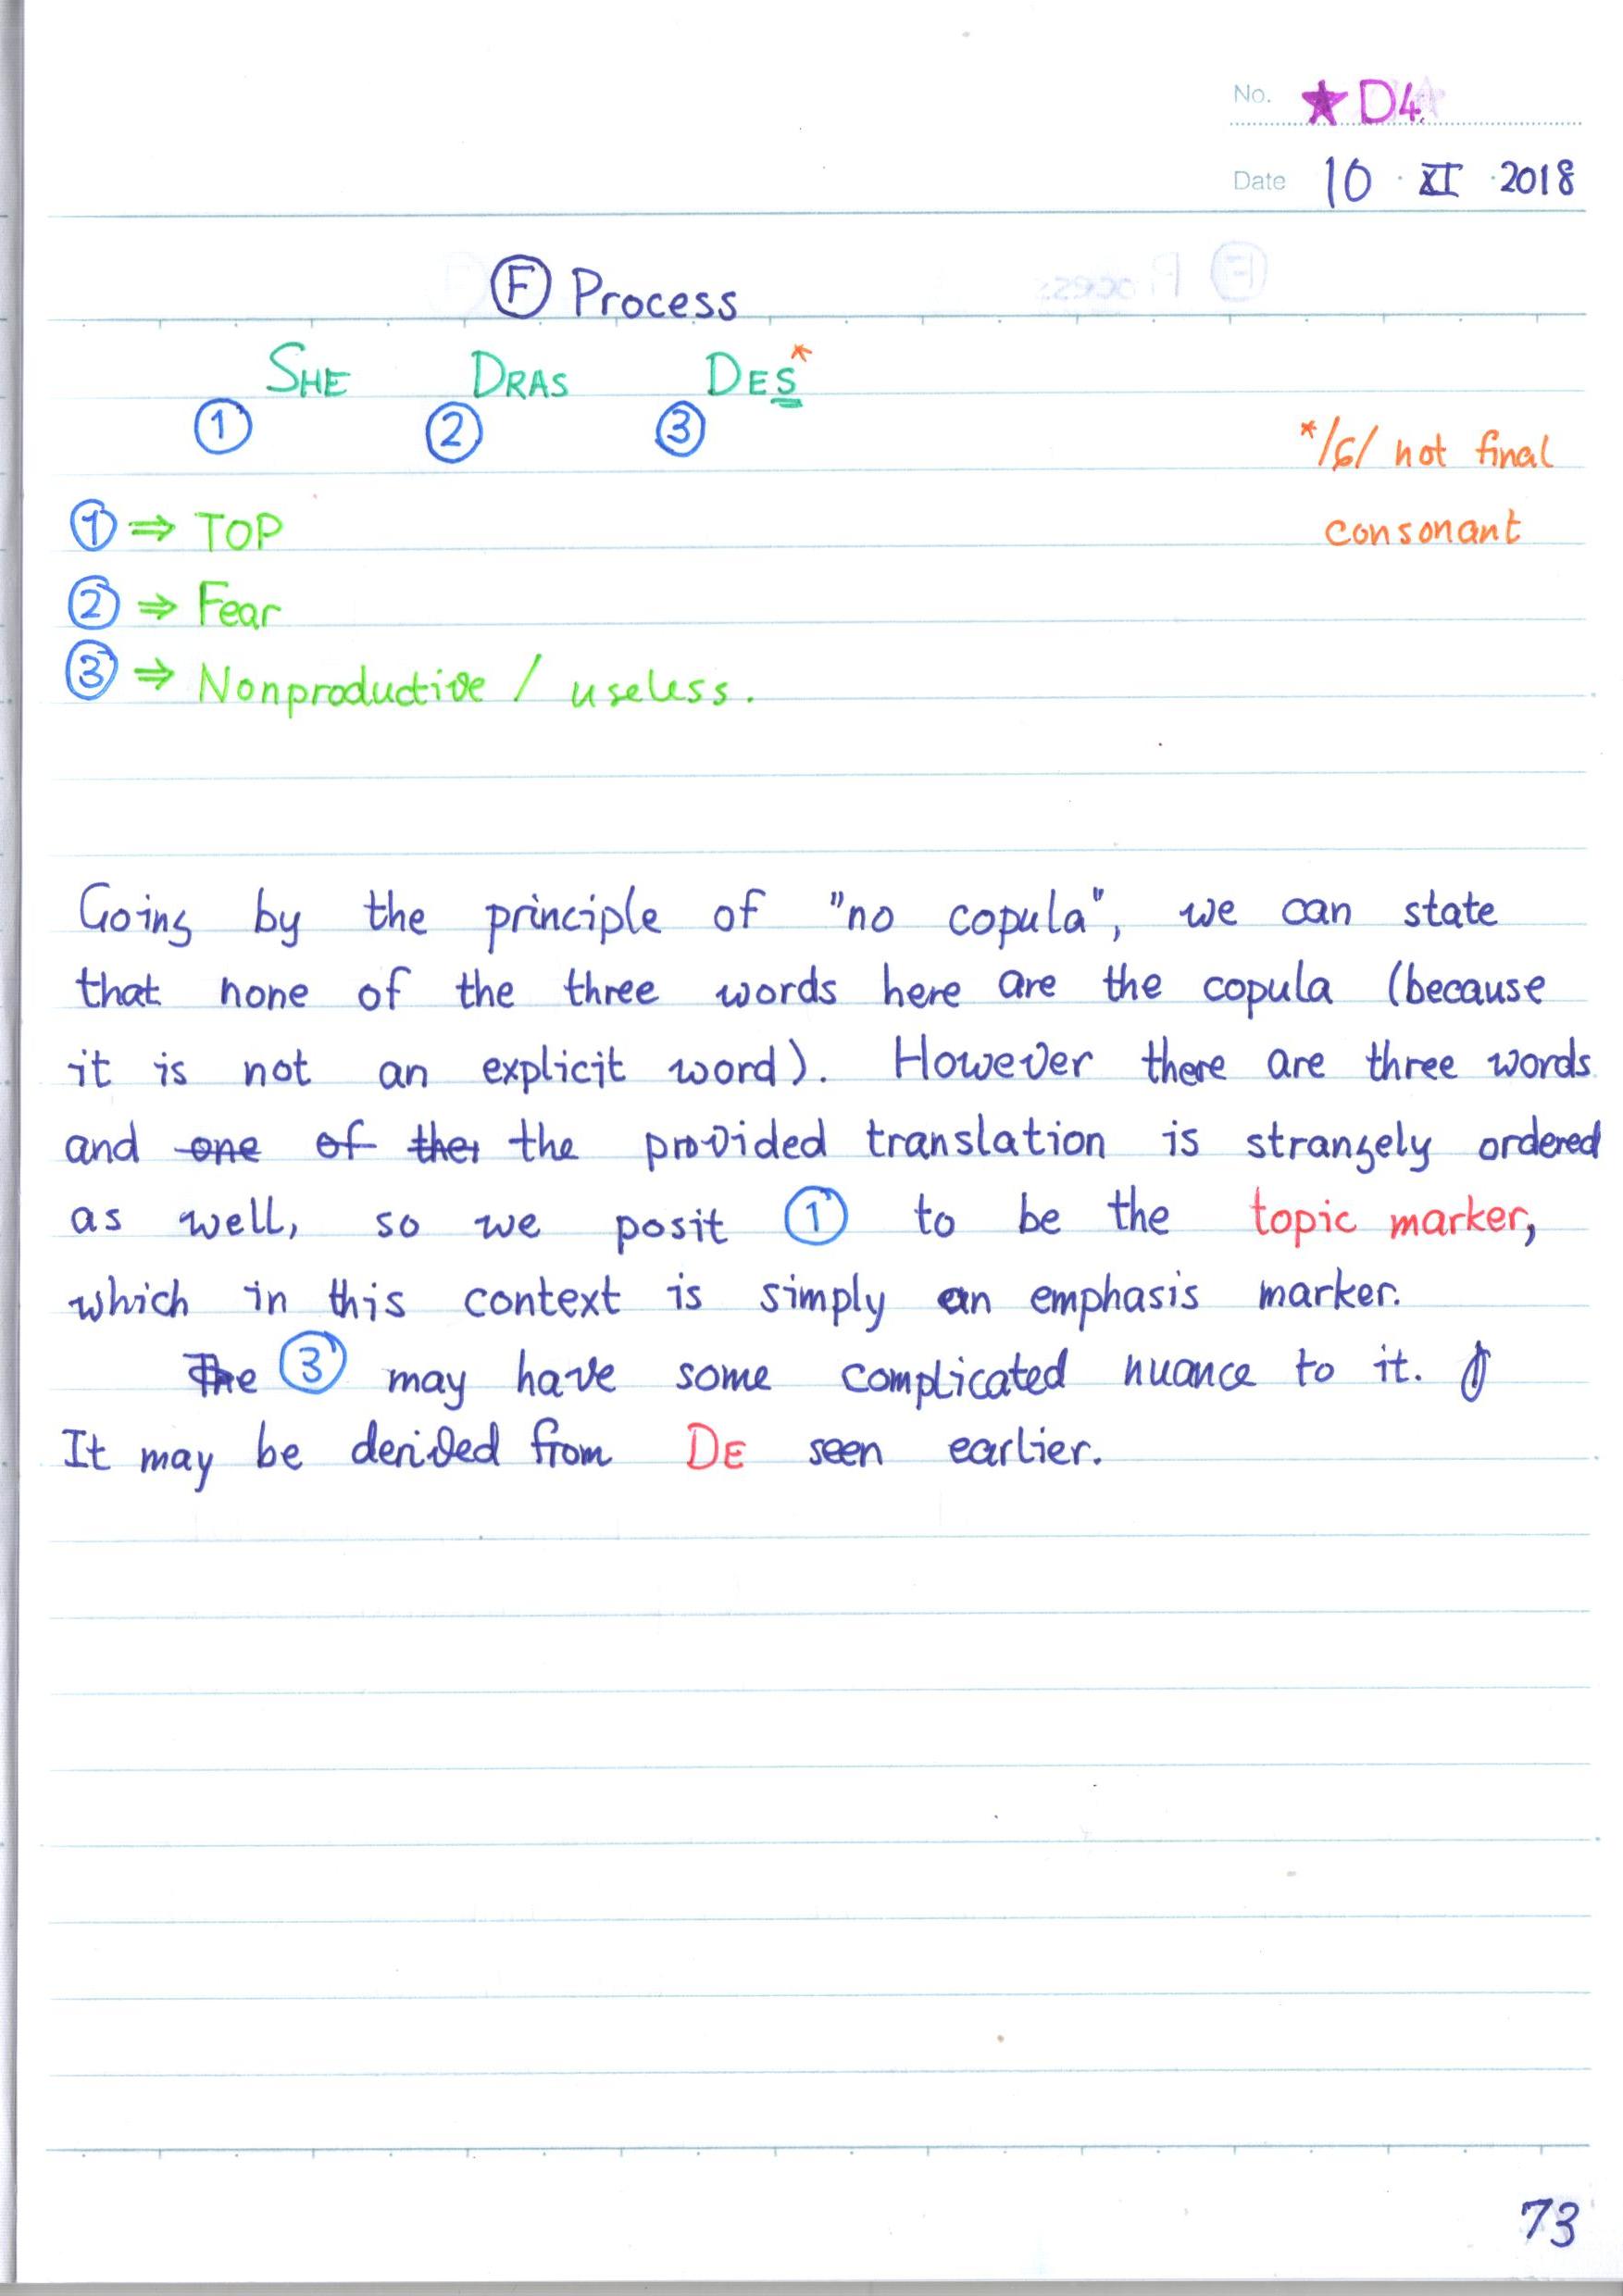 No. ★ D4
Date 10 · XI · 2018
Ⓕ Process
SHE DRAS DES*
① ② ③
*/ɕ/ not final
consonant
① ⇒ TOP
② ⇒ Fear
③ ⇒ Nonproductive / useless.
Going by the principle of "no copula", we can state
that none of the three words here are the copula (because
it is not an explicit word). However there are three words
and one of ther the provided translation is strangely ordered
as well, so we posit ① to be the topic marker,
which in this context is simply an emphasis marker.
The ③ may have some complicated nuance to it.
It may be derived from DE seen earlier.
73